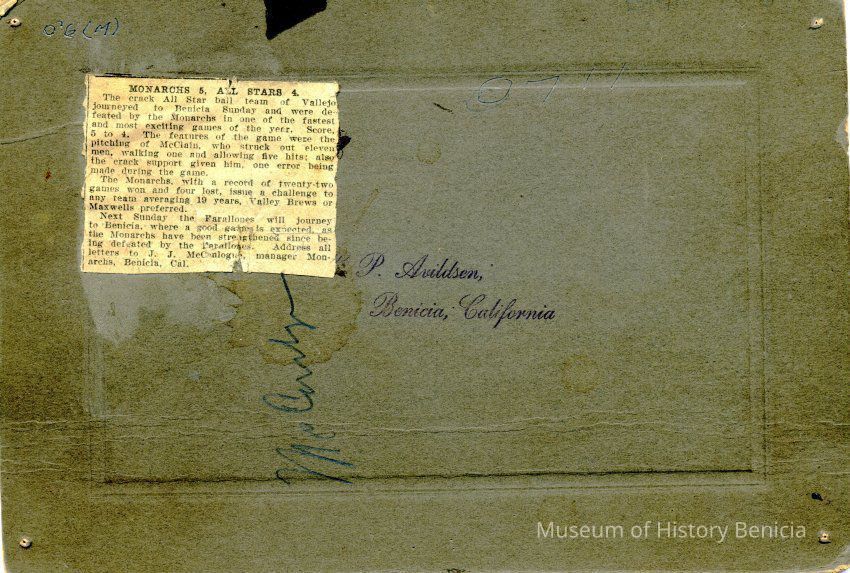 O°G(M)
MONARCHS 5, ALL STARS 4.
The crack All Star ball team of Vallejo
journeyed to Benicia Sunday and were de-
feated by the Monarchs in one of the fastest
and most exciting games of the year. Score,
5 to 4. The features of the game were the
pitching of McClain, who struck out eleven
men, walking one and allowing five hits; also
the crack support given him, one error being
made during the game.
The Monarchs, with a record of twenty-two
games won and four lost, issue a challenge to
any team averaging 19 years, Valley Brews or
Maxwells preferred.
Next Sunday the Farallones will journey
to Benicia, where a good game is expected, as
the Monarchs have been strengthened since be-
ing defeated by the Farallones. Address all
letters to J. J. McCanlogue, manager Mon-
archs, Benicia, Cal.
P. Avildsen,
Benicia, California
Museum of History Benicia